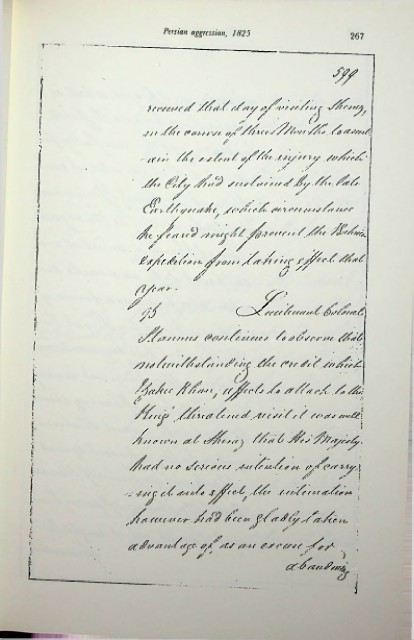 Persian aggression, 1825 267
599
received that day of visiting Sheraz,
in the course of three Months to ascert
-ain the extent of the injury which
the City had sustained by the late
Earthquake, which circumstance
he feared might prevent the Bahrein
expedition from taking effect that
year.
Lieutenant Colonel
Stannus continues to observe that
notwithstanding the credit which
Zakee Khan, affects to attach to the
King's threatened visit it was well
known at Sheraz that His Majesty
had no serious intention of carry
-ing it into effect, the intimation
however had been gladly taken
advantage of, as an excuse for
abandoning